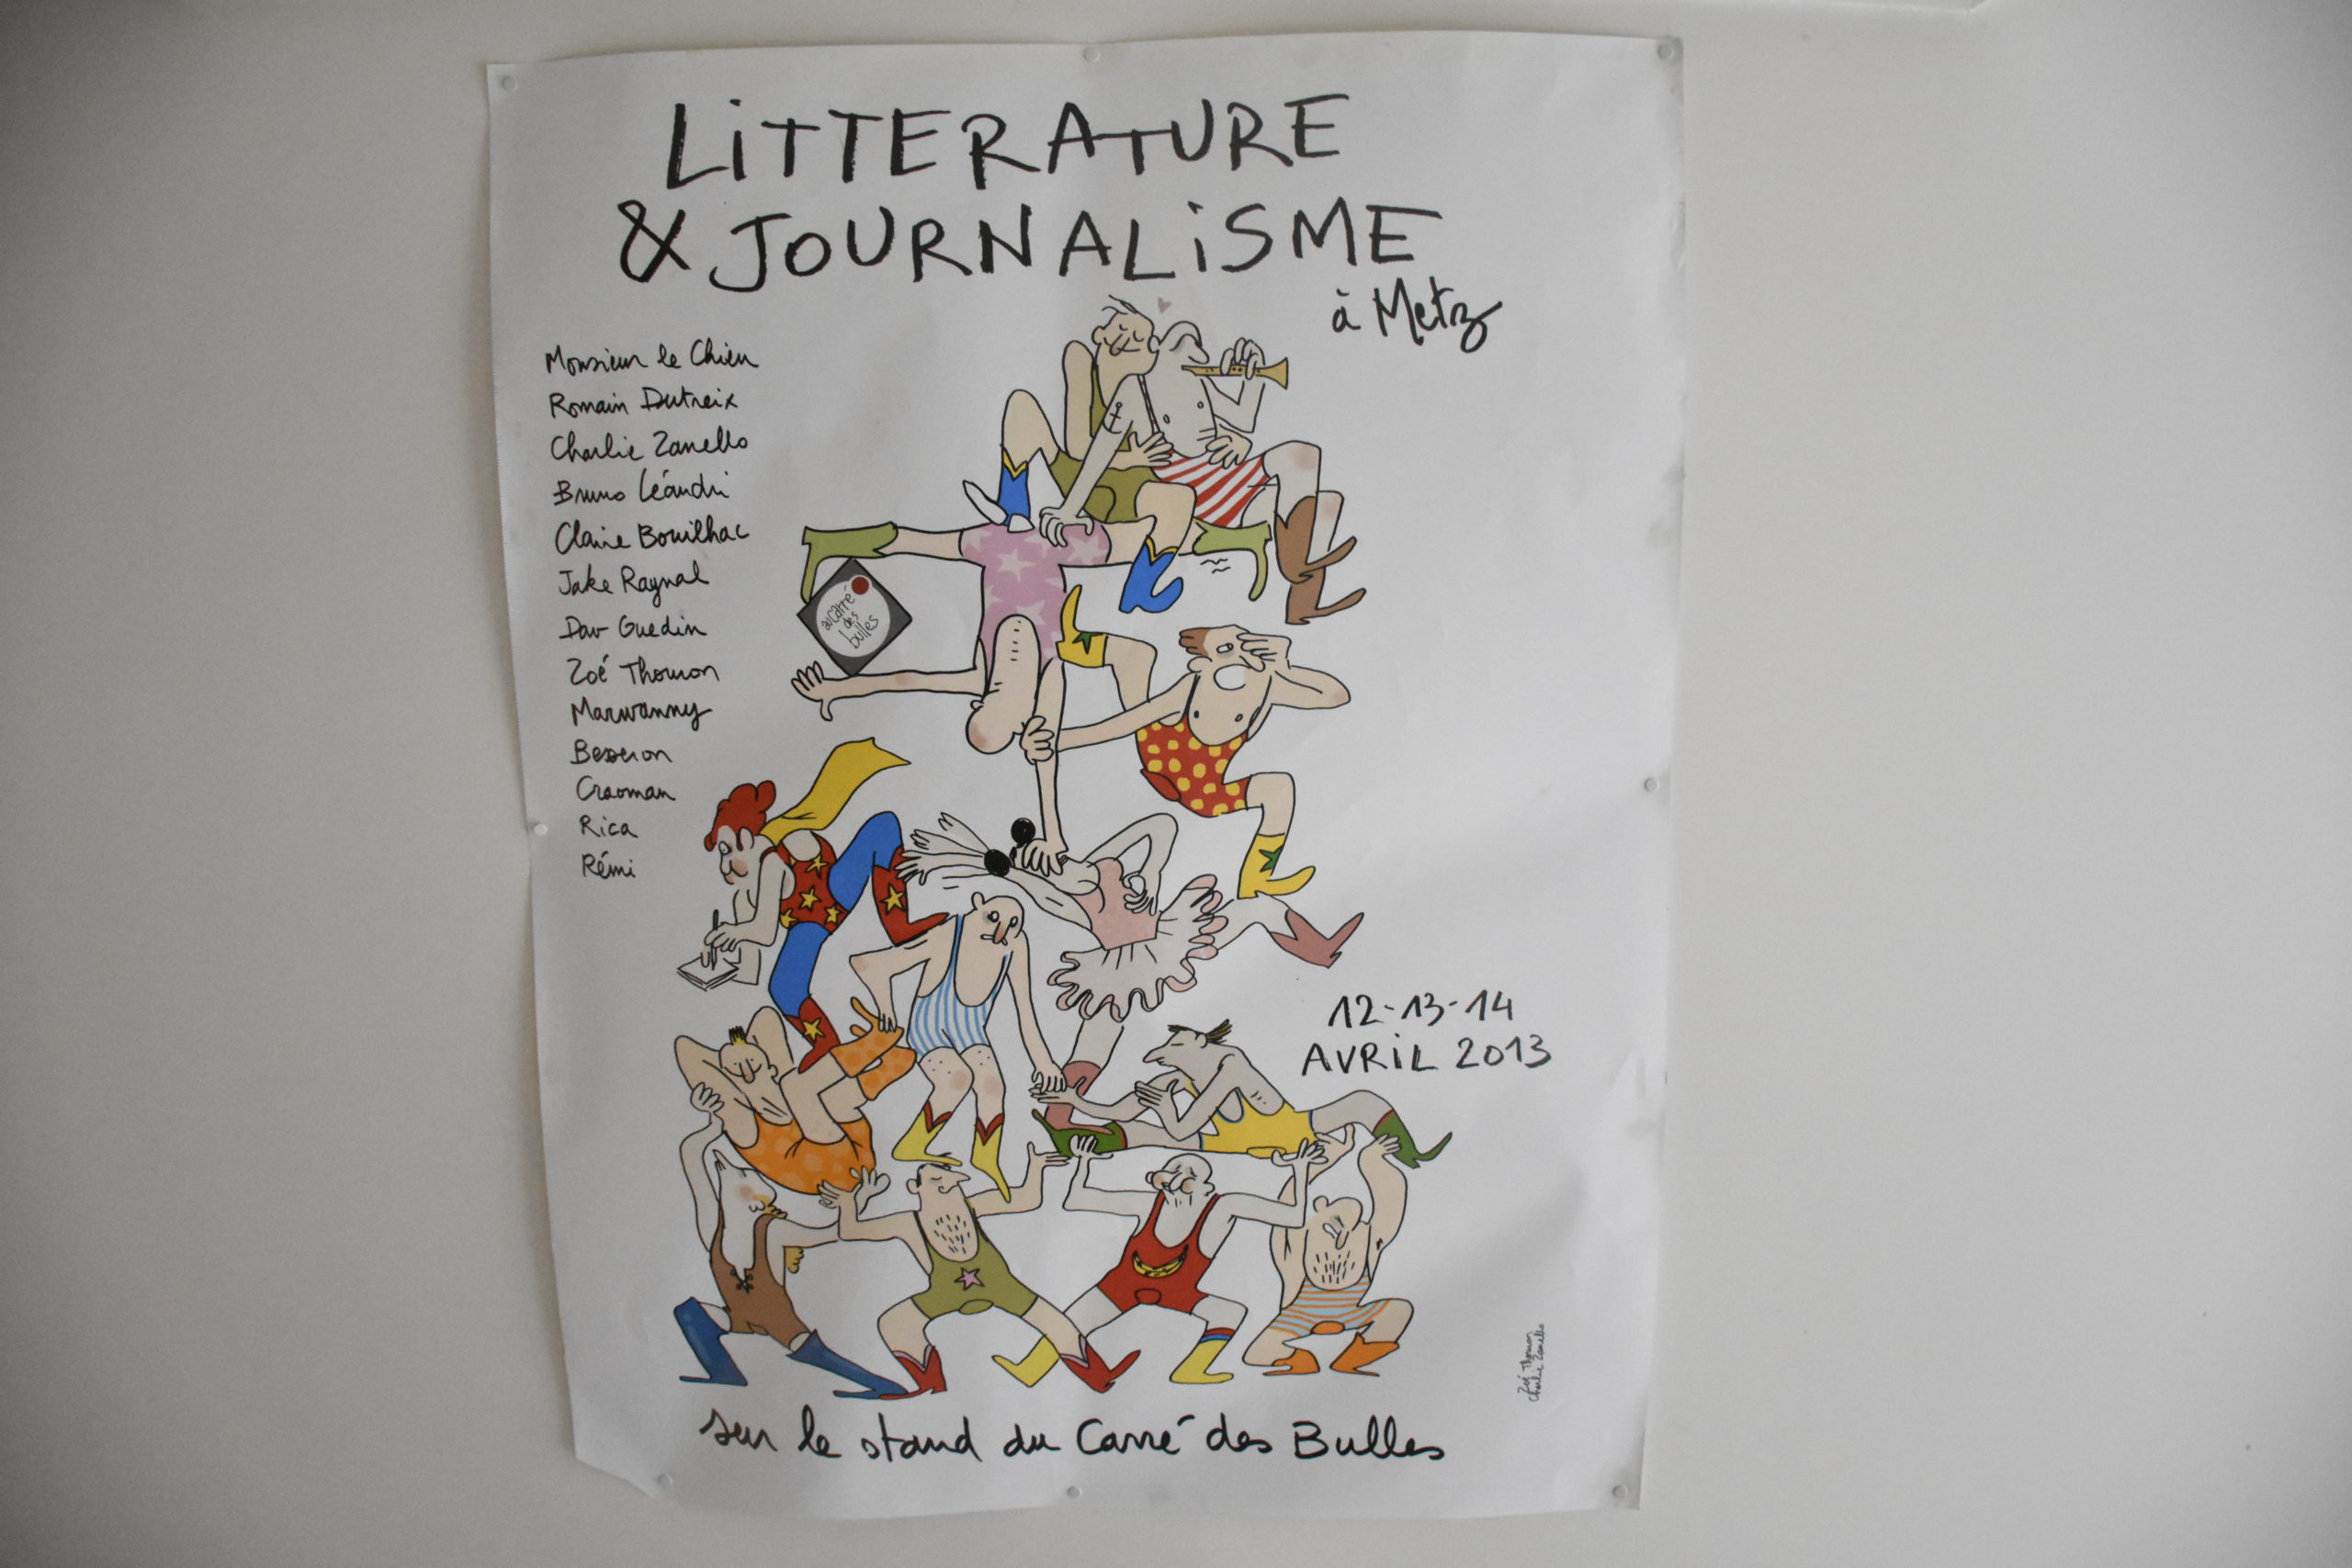 LiTTERATURE
& JOURNALiSME
à Metz
Monsieur le Chien
Romain Dutreix
Charlie Zanello
Bruno Léandri
Claire Bouilhac
Jake Raynal
Dav Guedin
Zoé Thouron
Marwanny
Besseron
Craoman
Rica
Rémi
au carré
des
bulles
12-13-14
AVRiL 2013
Zoé Thouron
Charlie Zanello
sur le stand du Carré des Bulles